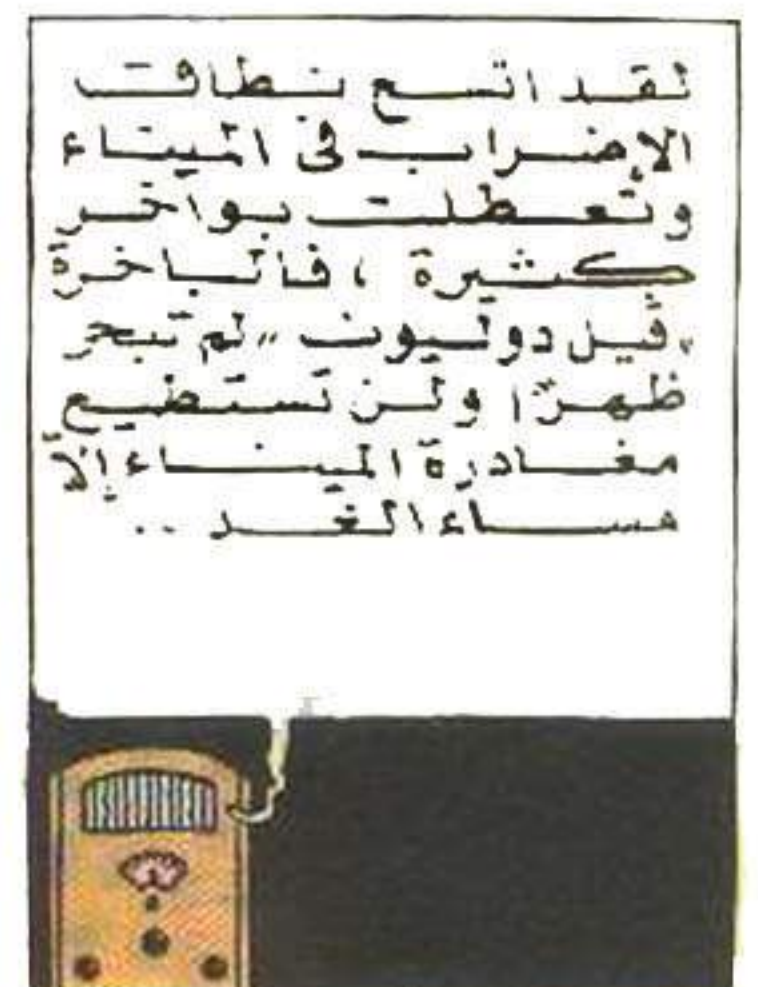 لقد اتسع نطاق
الإضراب فى الميناء
وتعطلت بواخر
كثيرة ، فالباخرة
"ڤيل دوليون" لم تبحر
ظهرًا ولن تستطيع
مغادرة الميناء إلاَّ
مساء الغد ..